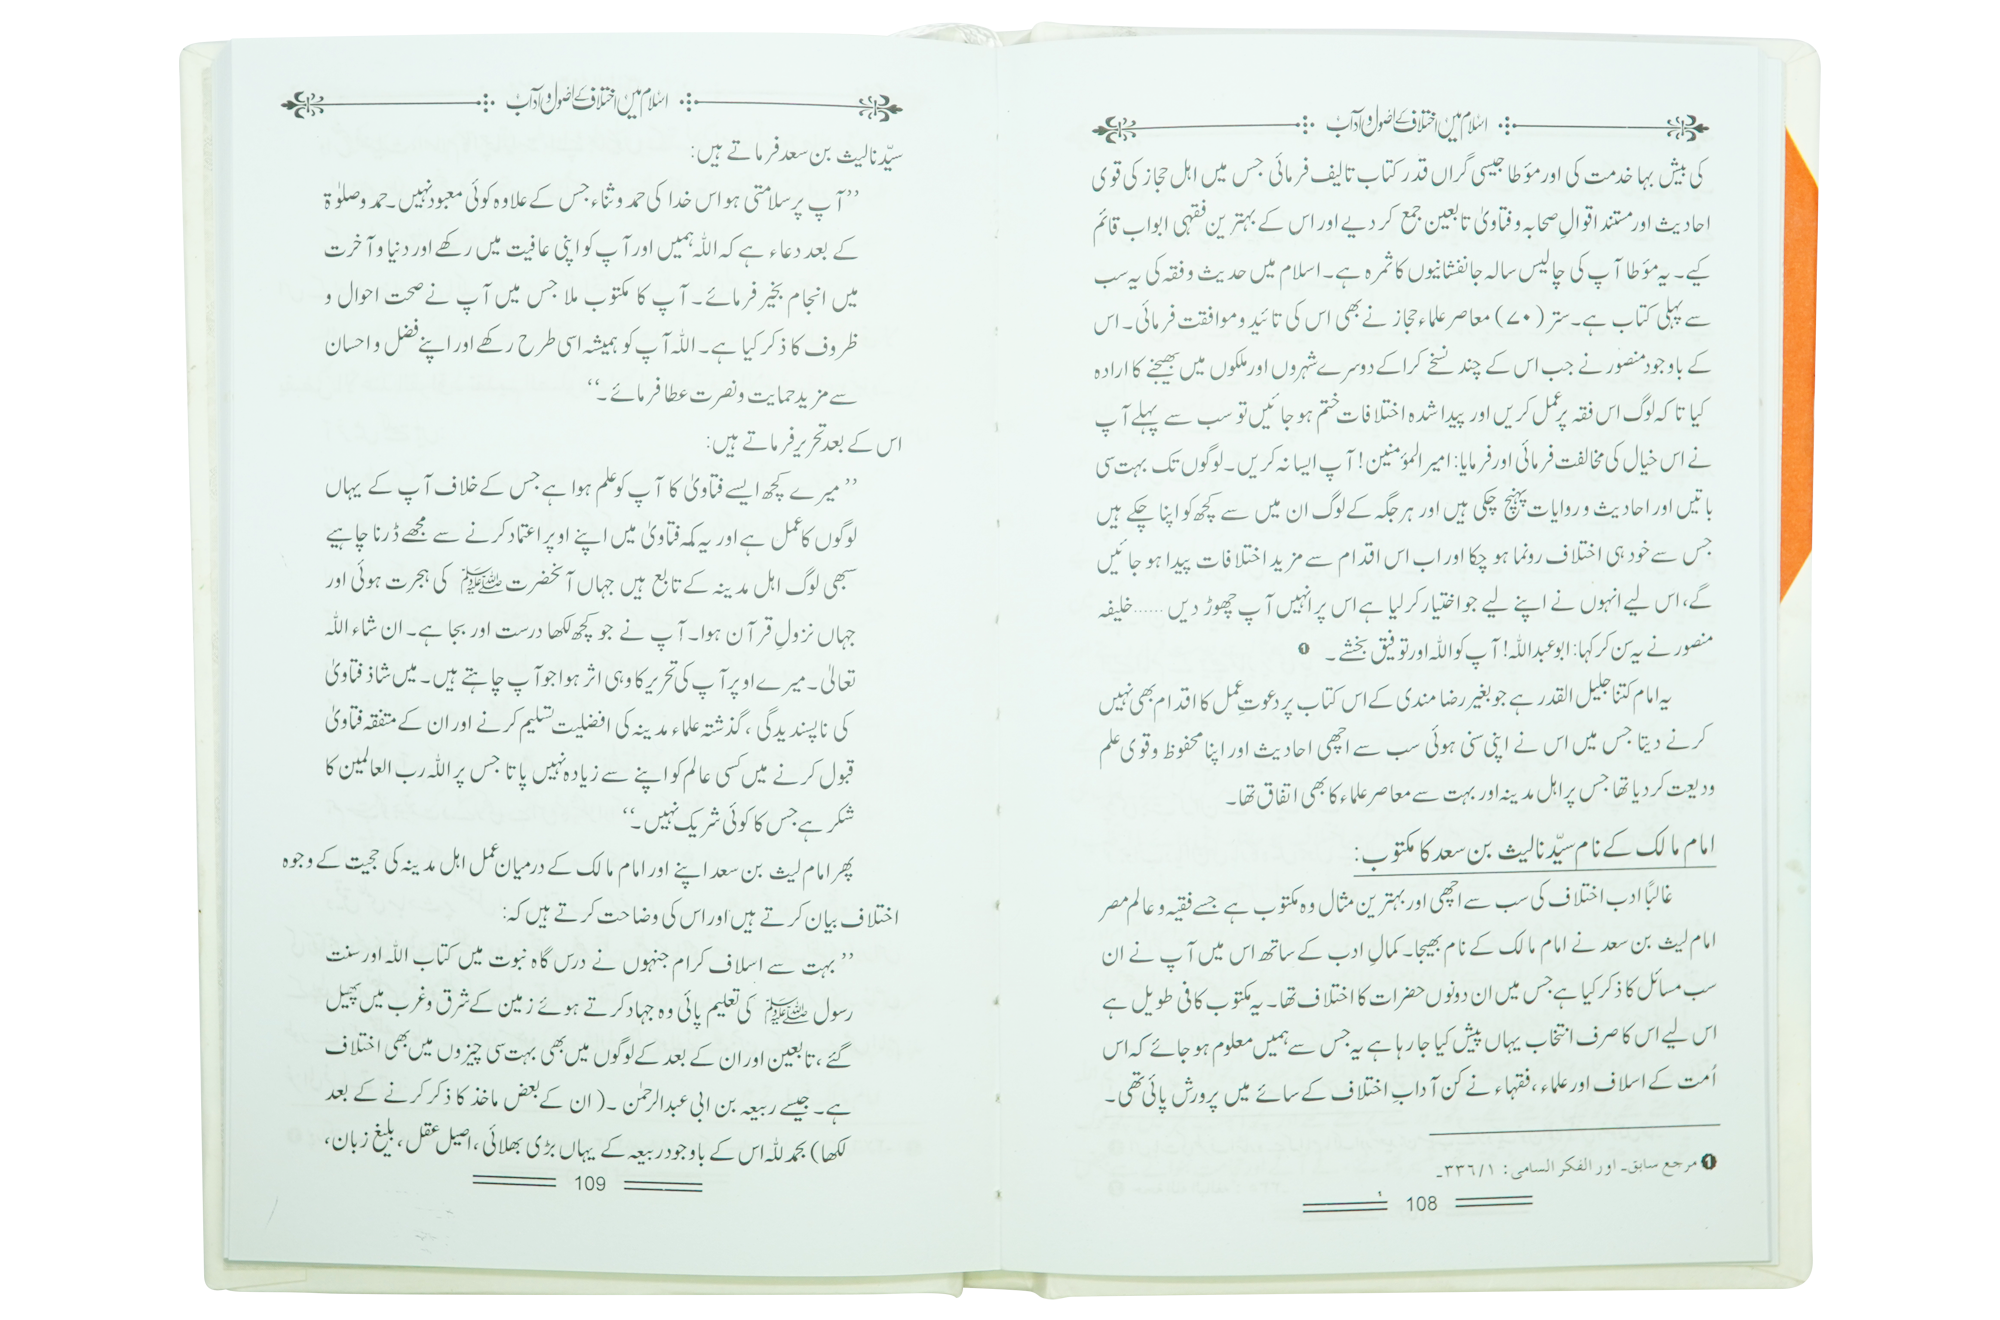 اسلام میں اختلاف کے اصول و آداب
کی بیش بہا خدمت کی اور مؤطا جیسی گراں قدر کتاب تالیف فرمائی جس میں اہل حجاز کی قوی
احادیث اور مستند اقوالِ صحابہ و فتاویٰ تابعین جمع کر دیے اور اس کے بہترین فقہی ابواب قائم
کیے۔ یہ مؤطا آپ کی چالیس سالہ جانفشانیوں کا ثمرہ ہے۔ اسلام میں حدیث و فقہ کی یہ سب
سے پہلی کتاب ہے۔ ستر (۷۰) معاصر علماء حجاز نے بھی اس کی تائید و موافقت فرمائی۔ اس
کے باوجود منصور نے جب اس کے چند نسخے کرا کے دوسرے شہروں اور ملکوں میں بھیجنے کا ارادہ
کیا تا کہ لوگ اس فقہ پر عمل کریں اور پیدا شدہ اختلافات ختم ہو جائیں تو سب سے پہلے آپ
نے اس خیال کی مخالفت فرمائی اور فرمایا: امیر المؤمنین! آپ ایسا نہ کریں۔ لوگوں تک بہت سی
باتیں اور احادیث و روایات پہنچ چکی ہیں اور ہر جگہ کے لوگ ان میں سے کچھ کو اپنا چکے ہیں
جس سے خود ہی اختلاف رونما ہو چکا اور اب اس اقدام سے مزید اختلافات پیدا ہو جائیں
گے، اس لیے انہوں نے اپنے لیے جو اختیار کر لیا ہے اس پر انہیں آپ چھوڑ دیں ...... خلیفہ
منصور نے یہ سن کر کہا: ابو عبداللہ! آپ کو اللہ اور توفیق بخشے۔ ❶
یہ امام کتنا جلیل القدر ہے جو بغیر رضا مندی کے اس کتاب پر دعوتِ عمل کا اقدام بھی نہیں
کرنے دیتا جس میں اس نے اپنی سنی ہوئی سب سے اچھی احادیث اور اپنا محفوظ و قوی علم
ودیعت کر دیا تھا جس پر اہل مدینہ اور بہت سے معاصر علماء کا بھی اتفاق تھا۔
امام مالک کے نام سیّدنا لیث بن سعد کا مکتوب:
غالبًا ادب اختلاف کی سب سے اچھی اور بہترین مثال وہ مکتوب ہے جسے فقیہ و عالم مصر
امام لیث بن سعد نے امام مالک کے نام بھیجا۔ کمالِ ادب کے ساتھ اس میں آپ نے ان
سب مسائل کا ذکر کیا ہے جس میں ان دونوں حضرات کا اختلاف تھا۔ یہ مکتوب کافی طویل ہے
اس لیے اس کا صرف انتخاب یہاں پیش کیا جا رہا ہے یہ جس سے ہمیں معلوم ہو جائے کہ اس
اُمت کے اسلاف اور علماء، فقہاء نے کن آدابِ اختلاف کے سائے میں پرورش پائی تھی۔
❶ مرجع سابق۔ اور الفكر السامى: ۳۳۶/۱۔
108
اسلام میں اختلاف کے اصول و آداب
سیّدنا لیث بن سعد فرماتے ہیں:
’’آپ پر سلامتی ہو اس خدا کی حمد و ثناء جس کے علاوہ کوئی معبود نہیں۔ حمد و صلوٰۃ
کے بعد دعاء ہے کہ اللہ ہمیں اور آپ کو اپنی عافیت میں رکھے اور دنیا و آخرت
میں انجام بخیر فرمائے۔ آپ کا مکتوب ملا جس میں آپ نے صحت احوال و
ظروف کا ذکر کیا ہے۔ اللہ آپ کو ہمیشہ اسی طرح رکھے اور اپنے فضل و احسان
سے مزید حمایت و نصرت عطا فرمائے۔‘‘
اس کے بعد تحریر فرماتے ہیں:
’’میرے کچھ ایسے فتاویٰ کا آپ کو علم ہوا ہے جس کے خلاف آپ کے یہاں
لوگوں کا عمل ہے اور یہ کہ فتاویٰ میں اپنے اوپر اعتماد کرنے سے مجھے ڈرنا چاہیے
سبھی لوگ اہل مدینہ کے تابع ہیں جہاں آنحضرت ﷺ کی ہجرت ہوئی اور
جہاں نزولِ قرآن ہوا۔ آپ نے جو کچھ لکھا درست اور بجا ہے۔ ان شاء اللہ
تعالیٰ۔ میرے اوپر آپ کی تحریر کا وہی اثر ہوا جو آپ چاہتے ہیں۔ میں شاذ فتاویٰ
کی ناپسندیدگی، گذشتہ علماء مدینہ کی افضلیت تسلیم کرنے اور ان کے متفقہ فتاویٰ
قبول کرنے میں کسی عالم کو اپنے سے زیادہ نہیں پاتا جس پر اللہ رب العالمین کا
شکر ہے جس کا کوئی شریک نہیں۔‘‘
پھر امام لیث بن سعد اپنے اور امام مالک کے درمیان عمل اہل مدینہ کی حجیت کے وجوہ
اختلاف بیان کرتے ہیں اور اس کی وضاحت کرتے ہیں کہ:
’’بہت سے اسلاف کرام جنہوں نے درس گاہ نبوت میں کتاب اللہ اور سنت
رسول ﷺ کی تعلیم پائی وہ جہاد کرتے ہوئے زمین کے شرق و غرب میں پھیل
گئے، تابعین اور ان کے بعد کے لوگوں میں بھی بہت سی چیزوں میں بھی اختلاف
ہے۔ جیسے ربیعہ بن ابی عبدالرحمٰن۔ (ان کے بعض ماخذ کا ذکر کرنے کے بعد
لکھا) بحمد للہ اس کے باوجود ربیعہ کے یہاں بڑی بھلائی، اصیل عقل، بلیغ زبان،
109